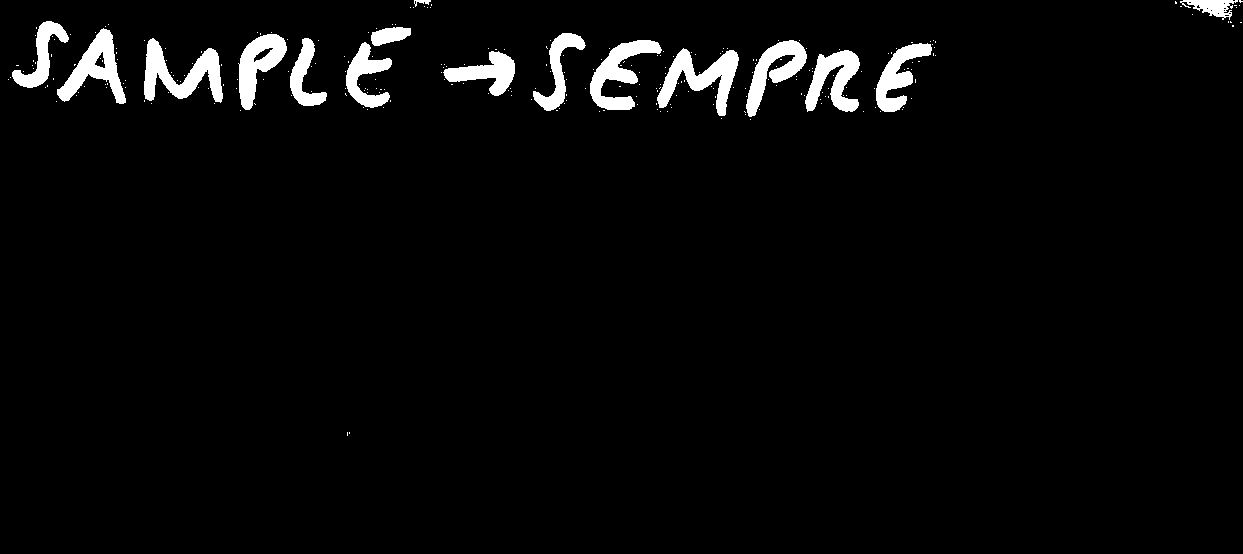 SAMPLE → SEMPRE